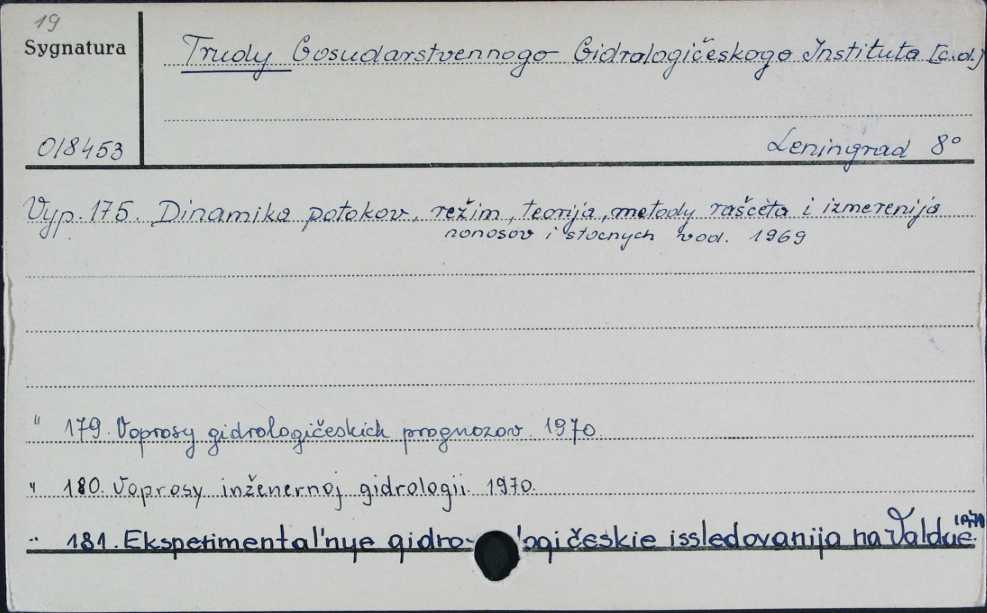 19
Sygnatura
Trudy Gosudarstvennogo Gidrologičeskogo Instituta [c.d.]
018453
Leningrad 8°
Vyp. 175. Dinamika potokov, režim, teorija, metody raščëta i izmerenija
nanosov i stočnych vod. 1969
" 179. Voprosy gidrologičeskich prognozov. 1970
" 180. Voprosy inženernoj gidrologii. 1970.
" 181. Eksperimental'nye gidro- logičeskie issledovanija na Valdae. 1970